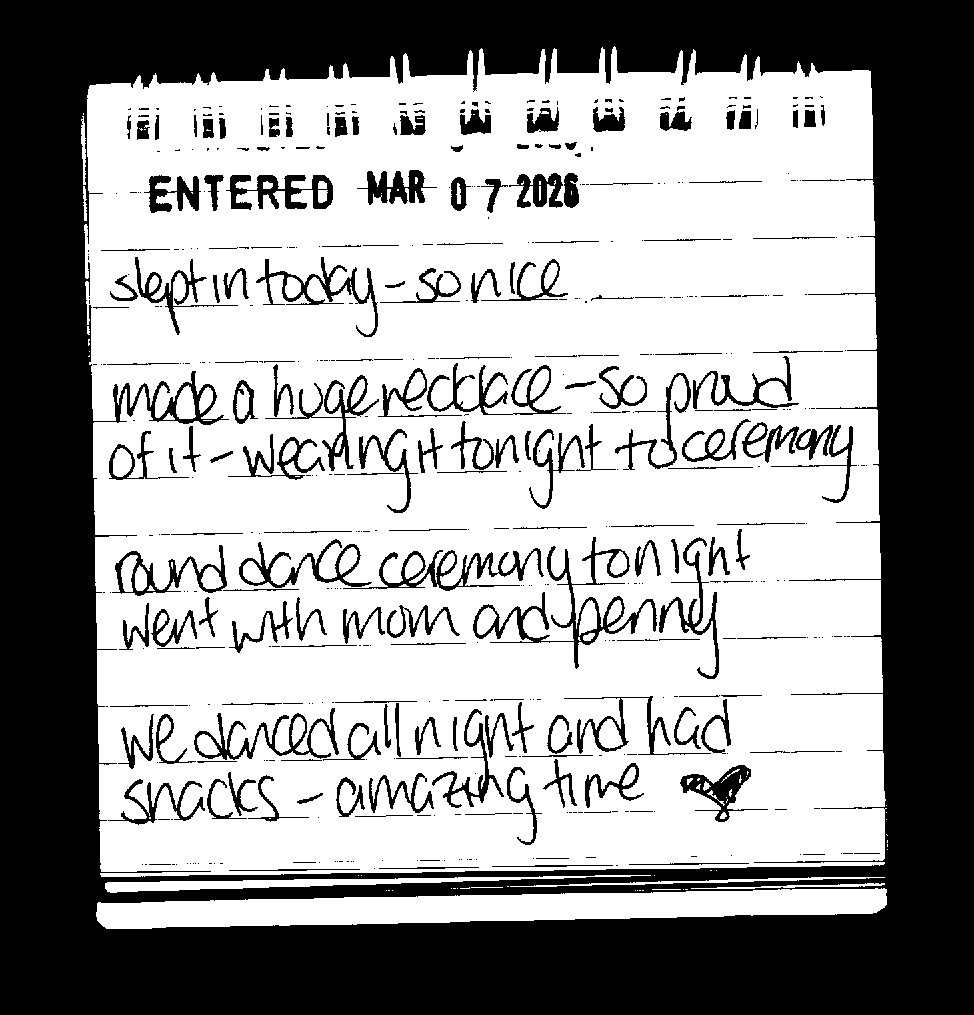 ENTERED MAR 07 2026
slept in today - so nice
made a huge necklace - so proud
of it - wearing it tonight to ceremony
round dance ceremony tonight
went with mom and penny
we danced all night and had
snacks - amazing time